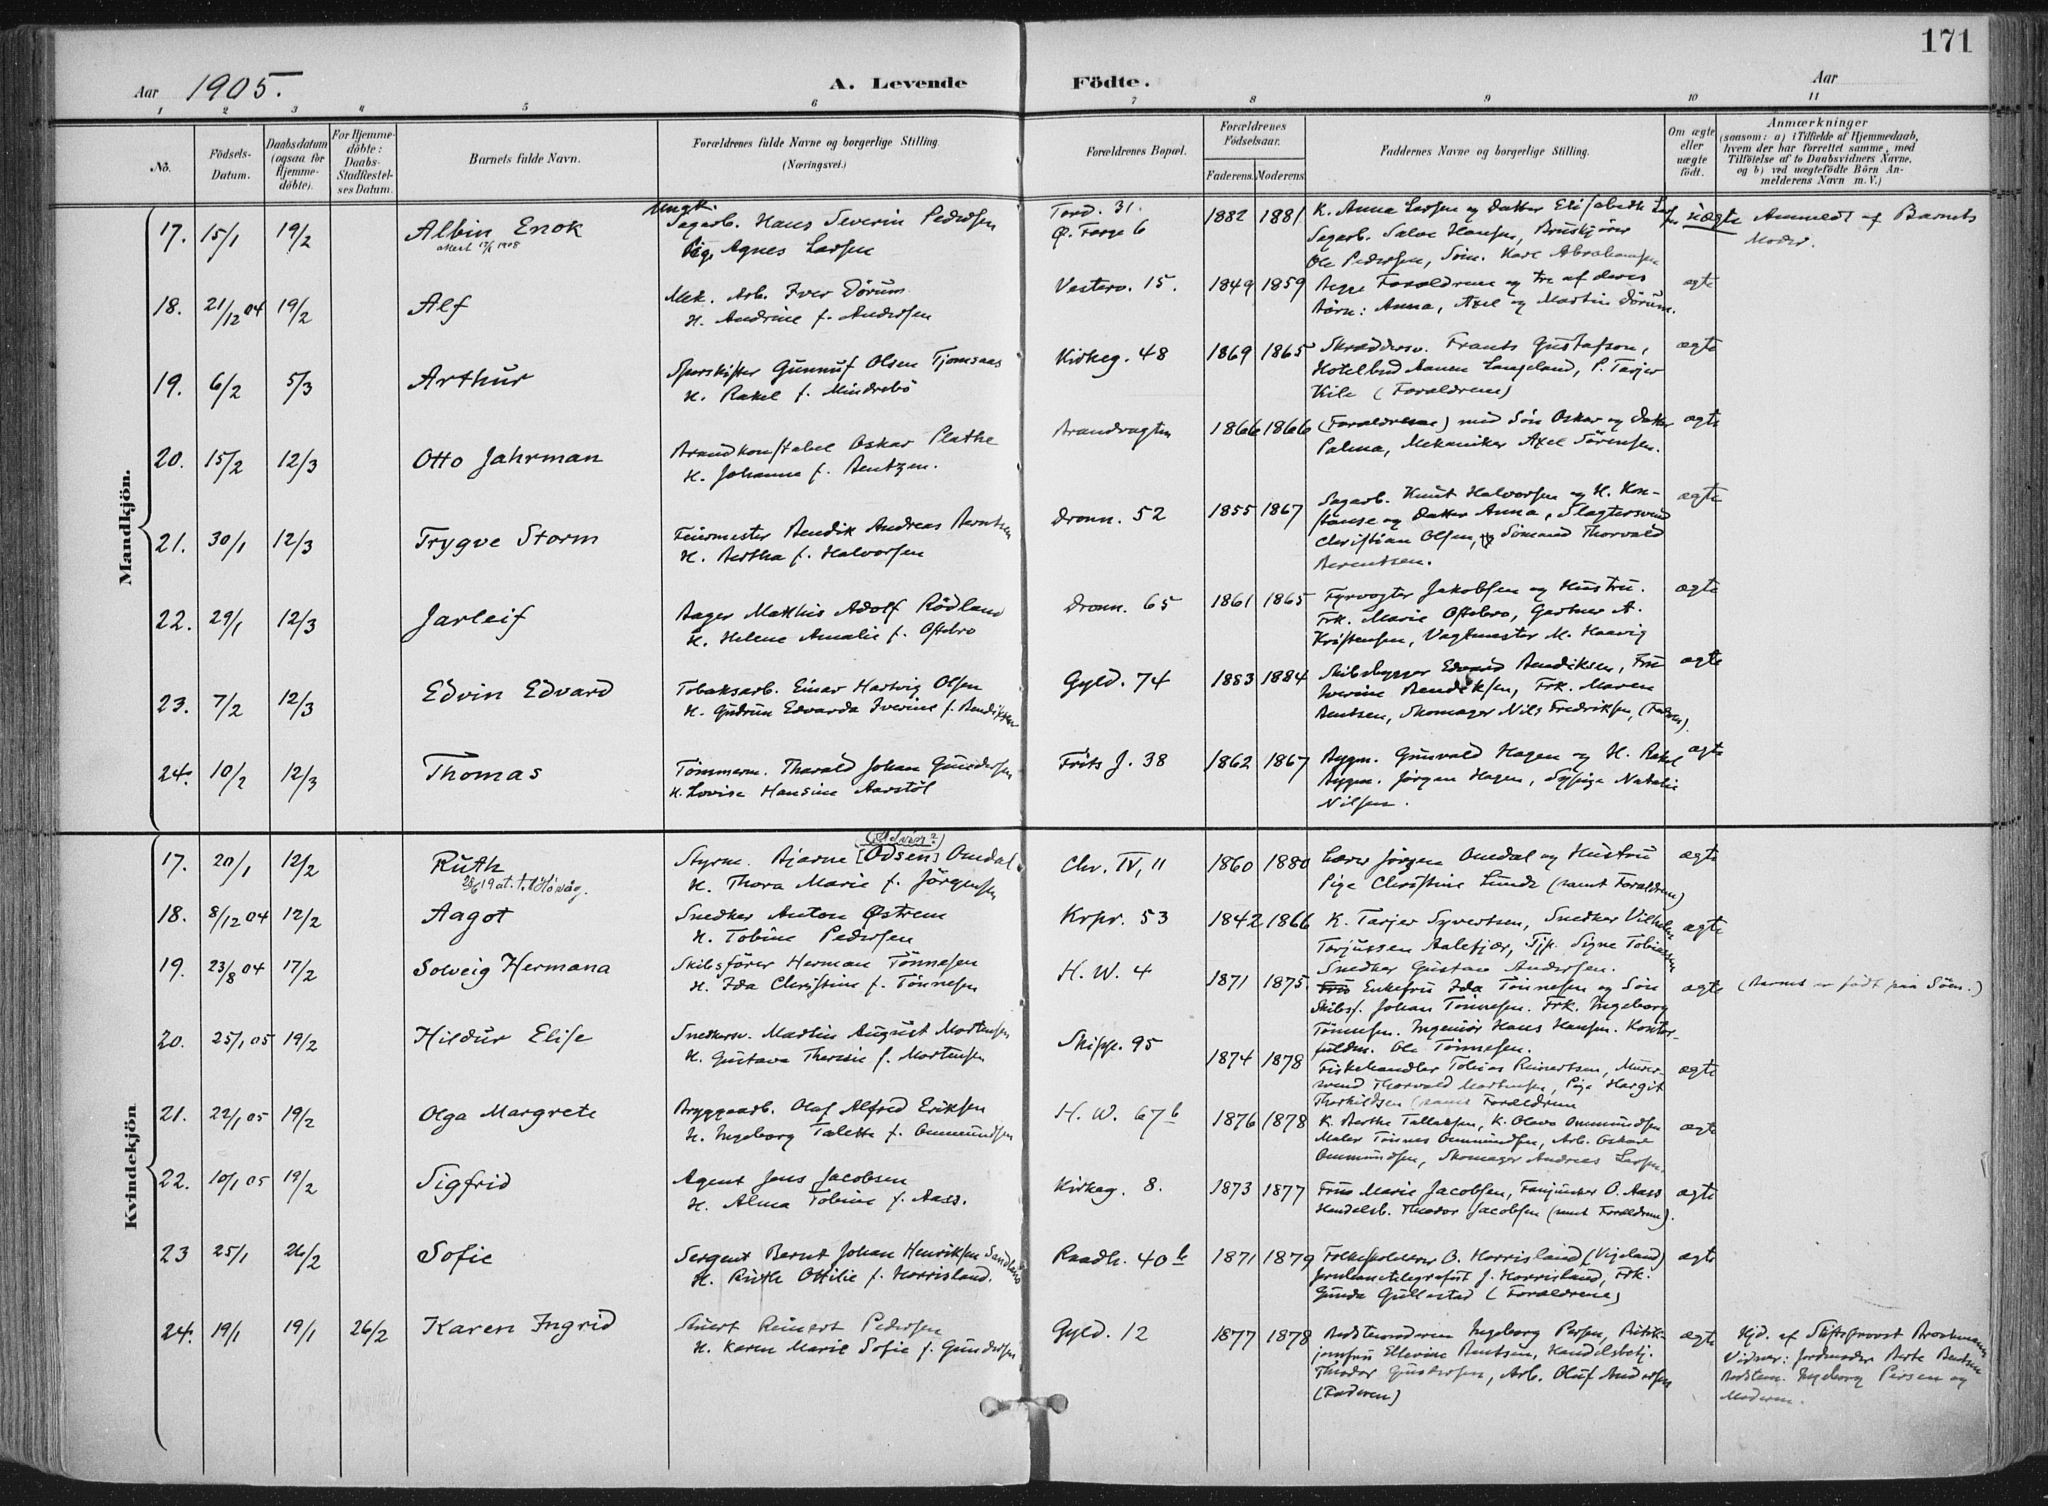 171
Aar 1905.
A. Levende Födte.
Aar
1 2 3 4 5 6 7 8 9 10 11
No.
Födsels-Datum.
Daabsdatum (ogsaa for Hjemme-döbte).
For Hjemme-döbte: Daabs-Stadfæstel-ses Datum.
Barnets fulde Navn.
Forældrenes fulde Navne og borgerlige Stilling. (Næringsvei.)
Forældrenes Bopæl.
Forældrenes Födselsaar.
Faderens. Moderens.
Faddernes Navne og borgerlige Stilling.
Om ægte eller uægte födt.
Anmærkninger
(saasom: a) i Tilfælde af Hjemmedaab, hvem der har forrettet samme, med Tilföielse af to Daabsvidners Navne, og b) ved uægtefödte Börn An-melderens Navn m. V.)
Mandkjön.
17. 15/1 19/2 Albin Enok
Ungk. Sagarb. Hans Severin Pedersen
Pige Agnes Larsen
Tord. 31.
Ø. Færge 6
1882 1881
K. Anna Larsen og Datter Elisabeth
Sagarb. Salve Hansen, Bruskjører
Ole Pedersen, Søm. Karl Abrahamsen
uægte Anmeldt af Barnets
Moder.
18. 21/12 04 19/2 Alf
Mek. Arb. Iver Dørum
H. Andrine f. Andersen
Vesterv. 15.
1849 1859
Begge Forældrene og tre af deres
Børn: Anna, Axel og Martin Dørum.
ægte
19. 6/2 5/3 Arthur
Sporskifter Gunnuf Olsen Tjomsaas
H. Rakel f. Mindrebö
Kirkeg. 48
1869 1865
Skræddersv. Frants Gustafson,
Hotelbud Langeland, P. Tarjer
Kile (Forældrene)
ægte
20. 15/2 12/3 Otto Jahrman
Brandkonstabel Oskar Plathe
H. Johanne f. Bentzen.
Brandvagten
1866 1866
(Forældrene) med Søn Oskar og Datter
Palma, Mekaniker Axel Sörensen.
ægte
21. 30/1 12/3 Trygve Storm
Feiermester Bendik Andreas Berntsen
H. Bertha f. Halvorsen
Dronn. 52
1855 1867
Sagarb. Knut Halvorsen og H. Kon-
stanse og Datter Anna, Slagtersvend
Christian Olsen, Sömand Thorvald
Berentsen.
ægte
22. 29/1 12/3 Jarleif
Bager Mathis Adolf Rödland
H. Helene Amalie f. Oftebro
Dronn. 65
1861 1865
Fyrvogter Jakobsen og Hustru.
Frk. Marie Oftebro, Gartner A.
Kristensen, Vagtmester M. Haavig
ægte
23. 7/2 12/3 Edvin Edvard
Tobaksarb. Einar Hartvig Olsen
H. Gudrun Edvarda Iverine f. Bendiksen
Gyld. 74
1883 1884
Skibsbygger Edvard Bendiksen, Fru
Iverine Bendiksen, Frk. Maren
Bentsen, Skomager Nils Fredriksen, (Faderen).
ægte
24. 10/2 12/3 Thomas
Tömmerm. Tharald Johan Gundersen
H. Lovise Hansine Aarstöl
Frits J. 38
1862 1867
Bygm. Gunvald Hagen og H. Rakel
Bygm. Jörgen Hagen, Sypige Natalie
Nilsen.
ægte
Kvindekjön
17. 20/1 12/2 Ruth
Styrm. Bjarne [Odsen] Omdal
H. Thora Marie f. Jörgensen
Chr. IV, 11
1860 1880
Lærer Jörgen Omdal og Hustru
Pige Christine Lunde (samt Forældrene)
ægte
18. 8/12 04 12/2 Aagot
Snedker Anton Østrem
H. Tobine Pedersen
Krpr. 53
1842 1866
K. Tarjer Syvertsen, Snedker Vilhelm
Torjussen Aalefjær, Tjp. Signe Tobiasen
Snedker Gustav Andersen.
ægte
19. 23/8 04 17/2 Solveig Hermana
Skibsförer Herman Tönnesen
H. Ida Christine f. Tönnesen
H. W. 4
1871 1875
Enkefru Ida Tönnesen og Sön
Skibsf. Johan Tönnesen. Frk. Ingeborg
Tönnesen. Ingeniör Hans Hansen. Kontor-
fuldm. Ole Tönnesen.
ægte (Barnet er födt paa Söen.)
20. 25/1 05 19/2 Hildur Elise
Snedkersv. Martin August Mortensen
H. Gustava Therese f. Mortensen
Skipp. 95
1874 1878
Fiskehandler Tobias Reinertsen, Murer-
svend Thorvald Mortensen, Pige Hargit
Thorkildsen samt Forældrene
ægte
21. 22/1 05 19/2 Olga Margrete
Bryggearb. Olaf Alfred Eriksen
H. Ingeborg Talette f. Ommundsen
H. W. 67 b
1876 1878
K. Berthe Tallaksen, K. Olava Ommundsen
Maler Tönnes Ommundsen, Arb. Oskar
Ommundsen, Skomager Andreas Larsen.
ægte
22. 10/1 05 19/2 Sigfrid
Agent Jens Jacobsen
H. Alma Tobine f. Aass.
Kirkeg. 8.
1873 1877
Frue Marie Jacobsen, Fanejunker O. Aass
Handelsb. Theodor Jacobsen (samt Forældrene).
ægte
23 25/1 26/2 Sofie
Sergent Bernt Johan Henriksen Sandland
H. Ruth Ottilie f. Horrisland.
Raadh. 40 b
1871 1879
Folkeskolelærer O. Horrisland (Vigeland)
Jernbanetelegrafist J. Horrisland, Frk.
Gunda Gullestad (Forældrene)
ægte
24. 19/1 19/1 26/2 Karen Ingrid
Stuert Reinert Pedersen
H. Karen Marie Sofie f. Gundersen
Gyld. 12
1877 1878
Bedstemoderen Ingeborg Persen, Butik-
jomfru Ellevine Bentsen, Handelsbetj.
Theodor Gundersen, Arb. Oluf Andersen
(Faderen)
ægte
Hjd. af Stiftsprovst Brochmann
Vidner: Jordmoder Berte Bentsen
Bedstem. Ingeborg Persen og
Moderen.